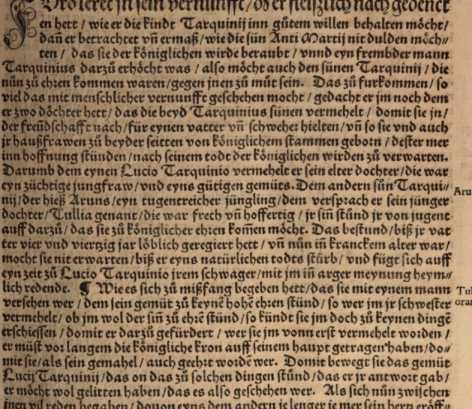 jn sein vernunfft / ob er fleißzlich nach gedenck
en hett / wie er die kinde Tarquinij inn gůtem willen behalten mőcht /
dañ er betrachtet vñ ermaß / wie die sün Anti Martij nit dulden mőch-
ten / das sie der kőniglichen wirde beraubt / vnnd eyn frembder mann
Tarquinius darzů erhőcht was / also mőcht auch den sünen Tarquinij / die
nůn zů ehren kommen waren / gegen jnen zů můt sein. Das zů furkommen / so
viel das mit menschlicher vernunfft geschehen mocht / gedacht er jm noch dem
er zwo dőchter hett / das die beyd Tarquinius sünen vermehelt / domit sie jn /
der freündschafft nach / für eynen vatter vñ schweher hielten / vñ so sie vnd auch
jr haußfrawen zů beyder seitten von kőniglichem stammen geborn / dester mer
inn hoffnung stůnden / nach seinem todt der kőniglichen wirden zů verwarten.
Darumb dem eynen Lucio Tarquinio vermehelt er sein elter dochter / die war
eyn züchtige jungfraw / vnd eyns gütigen gemüts. Dem andern sün Tarqui-
nij / der hieß Aruns / eyn tugentreicher jüngling / dem versprach er sein jünger
dochter / Tullia genant / die war frech vñ hoffertig / jr siñ stůnd jr von jugent
auff darzů / das sie zů kőniglicher ehren kom̃en mőcht. Das bestund / biß jr vat
ter vier vnd viertzig jar lőblich geregiert hett / vñ nůn iñ kranckem alter war /
mocht sie nit erwarten / biß er eyns natürlichen todts stürb / vnd fügt sich auff
eyn zeit zů Lucio Tarquinio jrem schwager / mit jm iñ arger meynung heym-
lich redende. ¶ Wie es sich zů mißfang begeben hett / das sie mit eynem mann
versehen wer / dem sein gemüt zů keynẽ hohẽ ehren stünd / so wer jm jr schwester
vermehelt / ob jm wol der siñ zů ehrẽ stünd / so kůnd sie jm doch zů keynen dinge
erschiessen / domit er darzů gefürdert / wer sie jm vonn erst vermehelt worden /
er müst vor langem die kőnigliche kron auff seinem haupt getragen haben / do-
mit sie / als sein gemahel / auch geehrt wordẽ wer. Domit bewegt sie das gemüt
Lucij Tarquinij / das on das zů solchen dingen stůnd / das er jr antwort gab /
er mőcht wol gelitten haben / das es also geschehen wer. Als sich nůn zwischen
jnen vil reden begaben / dauon eyns dem andern je lenger je mer sein hertz erőff-
Aru
Tul
orat